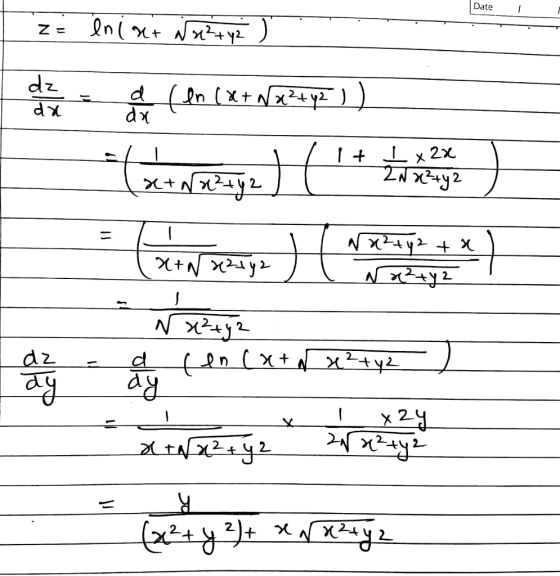 Date / /
z = ln(x + √(x²+y²))
dz/dx = d/dx (ln(x + √(x²+y²)))
= (1/(x + √(x²+y²))) (1 + 1/(2√(x²+y²)) × 2x)
= (1/(x + √(x²+y²))) ((√(x²+y²) + x)/√(x²+y²))
= 1/√(x²+y²)
dz/dy = d/dy (ln(x + √(x²+y²))
= 1/(x + √(x²+y²)) × 1/(2√(x²+y²)) × 2y
= y/((x²+y²) + x√(x²+y²))